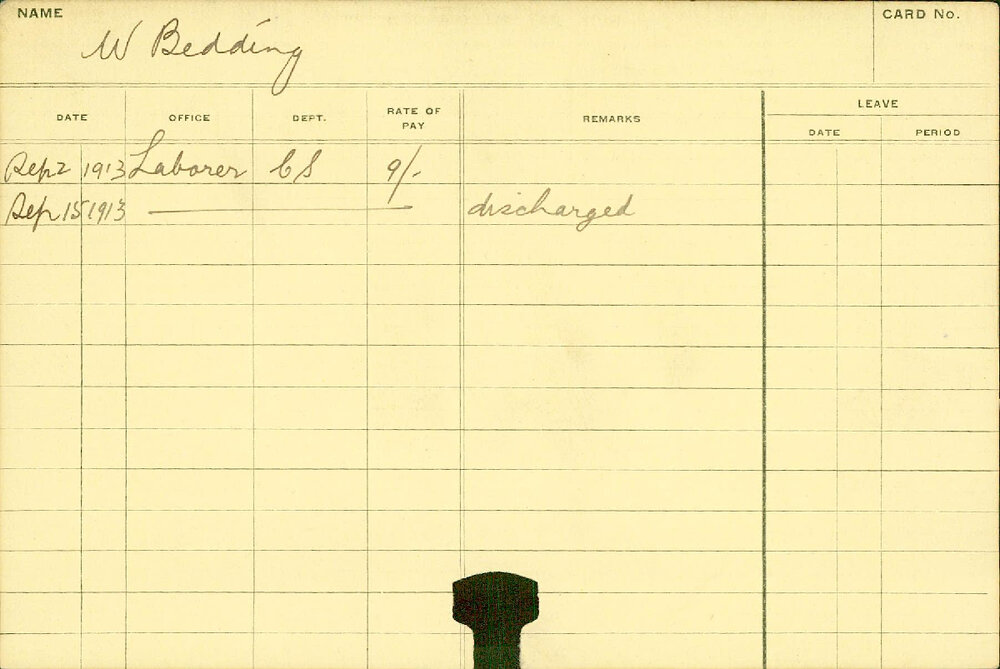 NAME
CARD No.
W Bedding
DATE OFFICE DEPT. RATE OF PAY REMARKS LEAVE
DATE PERIOD
Sep 2 1913 Laborer CS 9/-
Sep 15 1913 discharged